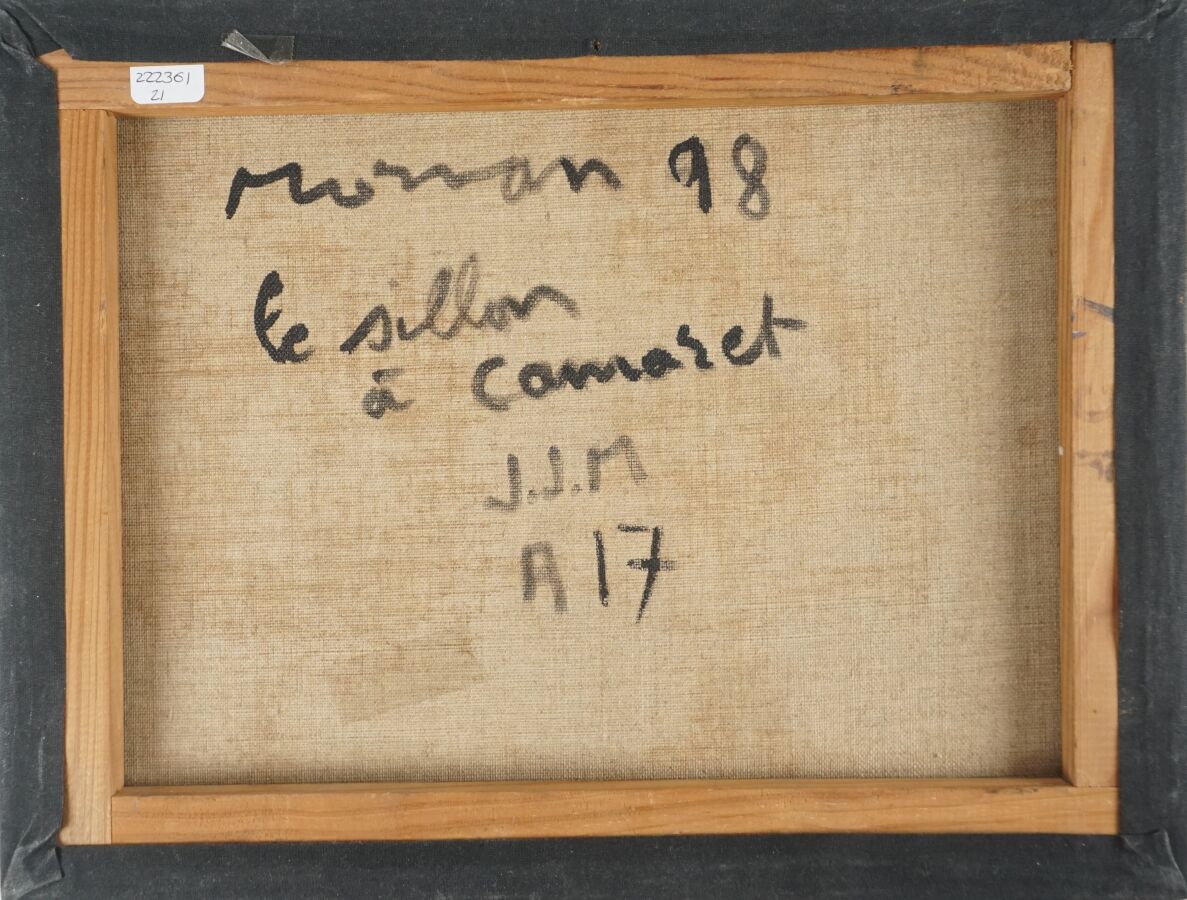 222361
21
Morvan 98
Le sillon
à Camaret
J.J.M
A 17